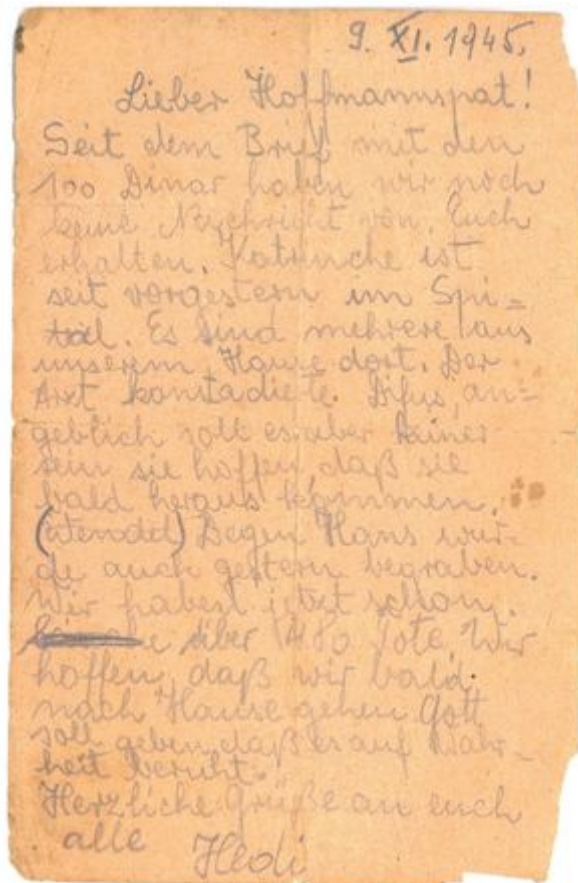 9. XI. 1945.
Lieber Hoffmannspat!
Seit dem Brief mit den
100 Dinar haben wir noch
keine Nachricht von Euch
erhalten. Katruche ist
seit vorgestern im Spi=
tal. Es sind mehrere aus
unserem Hause dort. Der
Arzt konstadierte Tifus, an=
geblich soll es aber keiner
sein sie hoffen, daß sie
bald heraus kommen.
(Wendel) Degen Hans wur-
de auch gestern begraben.
Wir haben jetzt schon
über 480 Tote. Wir
hoffen, daß wir bald
nach Hause gehen Gott
soll geben, daß es auf Wahr-
heit beruht.
Herzliche Grüße an euch
alle Hedi